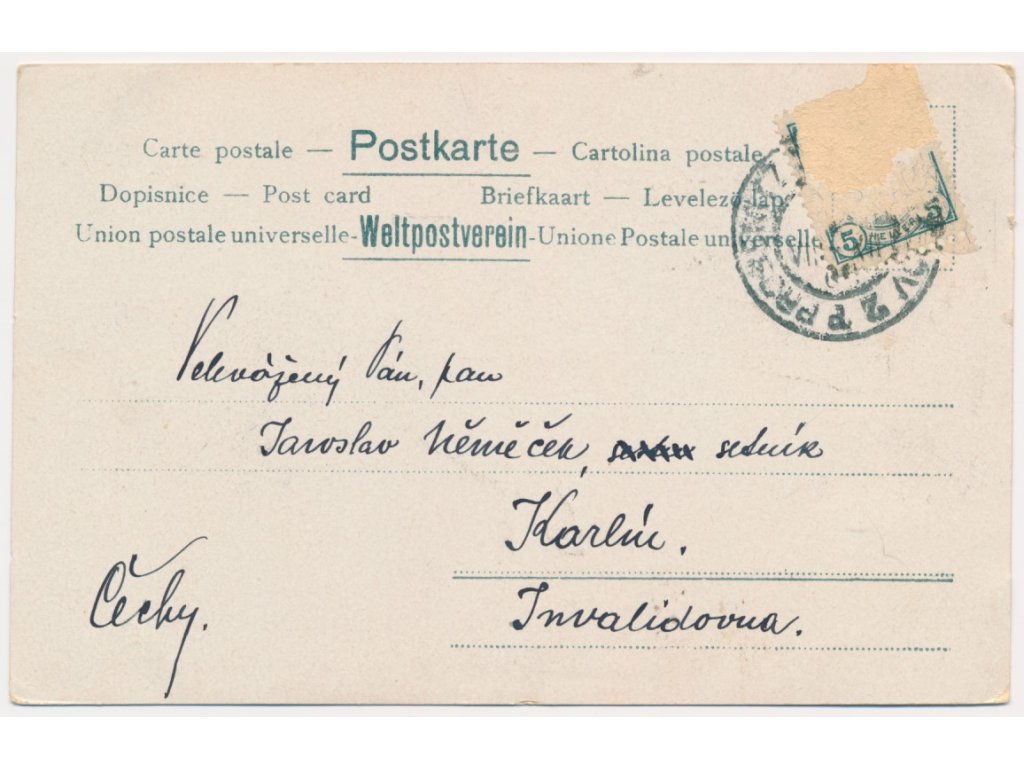 Carte postale — Postkarte — Cartolina postale
Dopisnice — Post card Briefkaart — Levelező lap
Union postale universelle-Weltpostverein-Unione Postale universelle
5 5
Velevážený Pán, pan
Jaroslav Něměček, setník
Karlín.
Čechy.
Invalidovna.